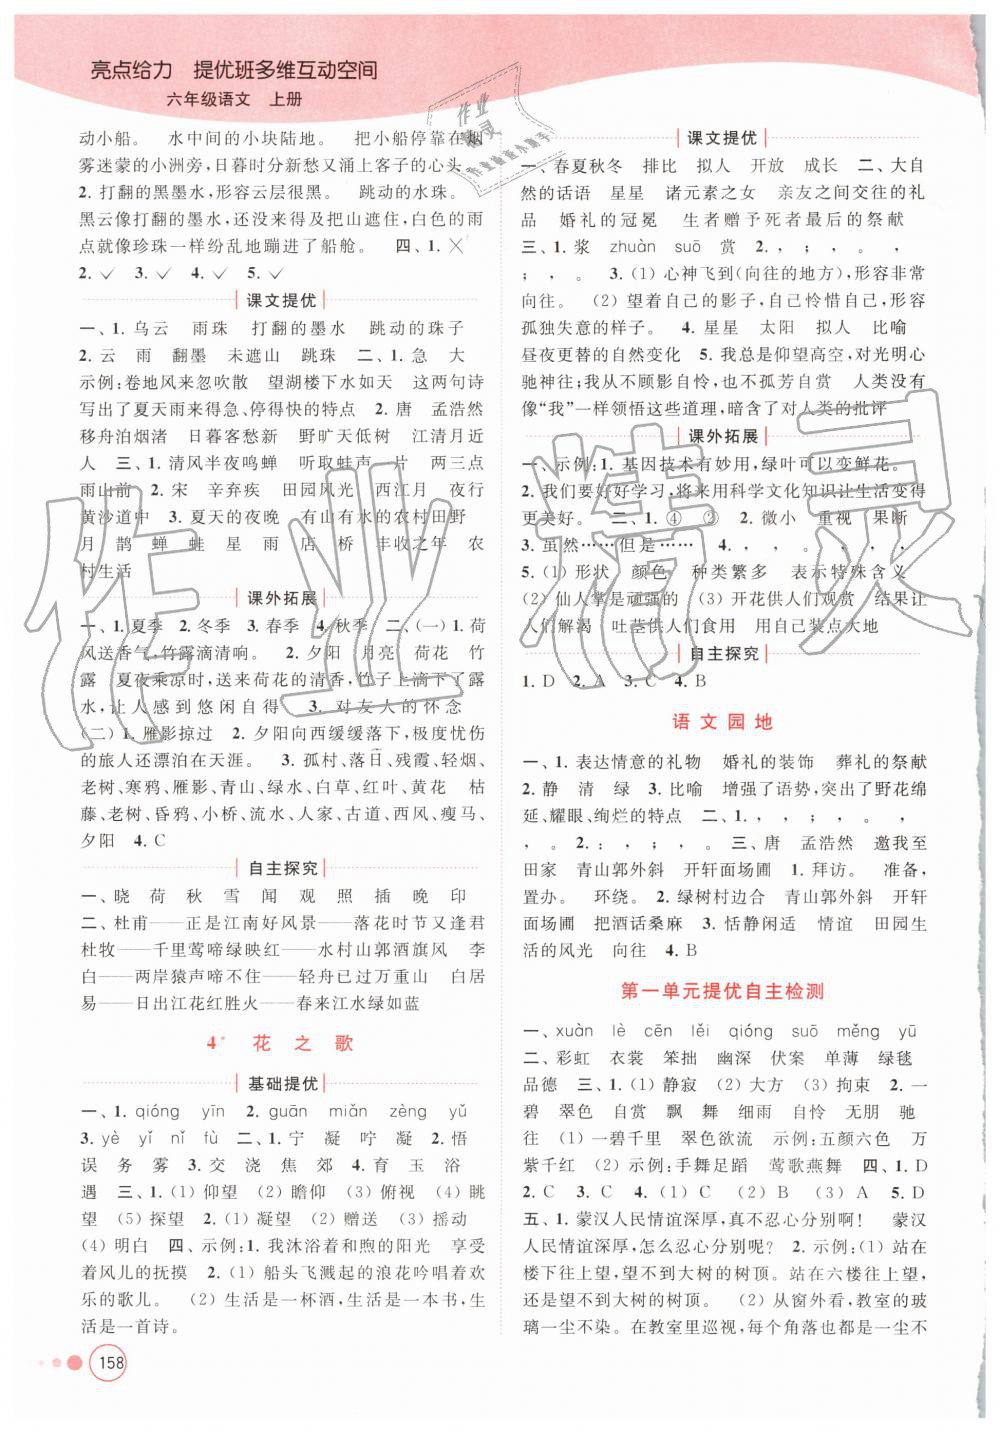 亮点给力 提优班多维互动空间
六年级语文 上册
动小船。 水中间的小块陆地。 把小船停靠在烟
雾迷蒙的小洲旁,日暮时分新愁又涌上客子的心头。
2. 打翻的黑墨水,形容云层很黑。 跳动的水珠。
黑云像打翻的墨水,还没来得及把山遮住,白色的雨
点就像珍珠一样纷乱地蹦进了船舱。 四、1. ×
2. ✓ 3. ✓ 4. ✓ 5. ✓
课文提优
一、1. 乌云 雨珠 打翻的墨水 跳动的珠子
2. 云 雨 翻墨 未遮山 跳珠 二、1. 急 大
示例:卷地风来忽吹散 望湖楼下水如天 这两句诗
写出了夏天雨来得急、停得快的特点 2. 唐 孟浩然
移舟泊烟渚 日暮客愁新 野旷天低树 江清月近
人 三、1. 清风半夜鸣蝉 听取蛙声一片 两三点
雨山前 2. 宋 辛弃疾 田园风光 西江月 夜行
黄沙道中 3. 夏天的夜晚 有山有水的农村田野
月 鹊 蝉 蛙 星 雨 店 桥 丰收之年 农
村生活
课外拓展
一、1. 夏季 2. 冬季 3. 春季 4. 秋季 二、(一) 1. 荷
风送香气,竹露滴清响。 2. 夕阳 月亮 荷花 竹
露 夏夜乘凉时,送来荷花的清香,竹子上滴下了露
水,让人感到悠闲自得 3. 对友人的怀念
(二) 1. 雁影掠过 2. 夕阳向西缓缓落下,极度忧伤
的旅人还漂泊在天涯。 3. 孤村、落日、残霞、轻烟、
老树、寒鸦、雁影、青山、绿水、白草、红叶、黄花 枯
藤、老树、昏鸦、小桥、流水、人家、古道、西风、瘦马、
夕阳 4. C
自主探究
一、晓 荷 秋 雪 闻 观 照 插 晚 印
二、杜甫——正是江南好风景——落花时节又逢君
杜牧——千里莺啼绿映红——水村山郭酒旗风 李
白——两岸猿声啼不住——轻舟已过万重山 白居
易——日出江花红胜火——春来江水绿如蓝
4* 花之歌
基础提优
一、1. qióng yīn 2. guān miǎn zèng yǔ
3. yè yǐ nǐ fù 二、1. 宁 凝 咛 凝 2. 悟
误 务 雾 3. 交 浇 焦 郊 4. 育 玉 浴
遇 三、1. (1) 仰望 (2) 瞻仰 (3) 俯视 (4) 眺
望 (5) 探望 2. (1) 凝望 (2) 赠送 (3) 摇动
(4) 明白 四、示例:1. 我沐浴着和煦的阳光 享受
着风儿的抚摸 2. (1) 船头飞溅起的浪花吟唱着欢
乐的歌儿。 (2) 生活是一杯酒,生活是一本书,生
活是一首诗。
158
课文提优
一、春夏秋冬 排比 拟人 开放 成长 二、大自
然的话语 星星 诸元素之女 亲友之间交往的礼
品 婚礼的冠冕 生者赠予死者最后的祭献
三、1. 浆 zhuàn suō 赏 2. , ; , 。 ,
; , 。 。 3. (1) 心神飞到(向往的地方),形容非常
向往。 (2) 望着自己的影子,自己怜惜自己,形容
孤独失意的样子。 4. 星星 太阳 拟人 比喻
昼夜更替的自然变化 5. 我总是仰望高空,对光明心
驰神往;我从不顾影自怜,也不孤芳自赏 人类没有
像“我”一样领悟这些道理,暗含了对人类的批评
课外拓展
一、示例:1. 基因技术有妙用,绿叶可以变鲜花。
2. 我们要好好学习,将来用科学文化知识让生活变得
更美好。 二、1. ④ ② 2. 微小 重视 果断
3. 虽然……但是…… 4. , , 。 , , ,
5. (1) 形状 颜色 种类繁多 表示特殊含义
(2) 仙人掌是顽强的 (3) 开花供人们观赏 结果让
人们解渴 吐茎供人们食用 用自己装点大地
自主探究
1. D 2. A 3. C 4. B
语文园地
一、1. 表达情意的礼物 婚礼的装饰 葬礼的祭献
2. 静 清 绿 3. 比喻 增强了语势,突出了野花绵
延、耀眼、绚烂的特点 二、1. , 。 , , ,
, 。 2. : , ; , ; , 。 三、唐 孟浩然 邀我至
田家 青山郭外斜 开轩面场圃 1. 拜访。 准备,
置办。 环绕。 2. 绿树村边合 青山郭外斜 开轩
面场圃 把酒话桑麻 3. 恬静闲适 情谊 田园生
活的风光 向往 4. B
第一单元提优自主检测
一、xuàn lè cēn lěi qióng suō měng yū
二、彩虹 衣裳 笨拙 幽深 伏案 单薄 绿毯
品德 三、1. (1) 静寂 (2) 大方 (3) 拘束 2. 一
碧 翠色 自赏 飘 舞 细雨 自怜 无朋 驰
往 (1) 一碧千里 翠色欲流 示例:五颜六色 万
紫千红 (2) 示例:手舞足蹈 莺歌燕舞 四、1. D
2. C 3. C 4. (1) C (2) B (3) A 5. D
五、1. 蒙汉人民情谊深厚,真不忍心分别啊! 蒙汉
人民情谊深厚,怎么忍心分别呢? 2. 示例:(1) 站在
楼下往上望,望不到大树的树顶。站在六楼往上望,
还是望不到大树的树顶。 (2) 从窗外看,教室的玻
璃一尘不染。在教室里巡视,每个角落也都是一尘不